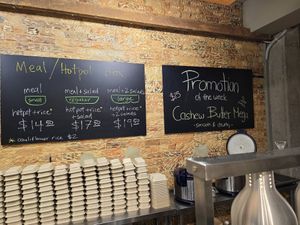 Meal/Hotpot
meal
small
hotpot+rice*
$14.50
meal+salad
regular
hotpot+rice*
+salad
$17.50
meal+2 salads
large
hotpot+rice*
+2 salads
$19.50
* cauliflower rice $2
Promotion
of the week
$15
Cashew Butter Mega